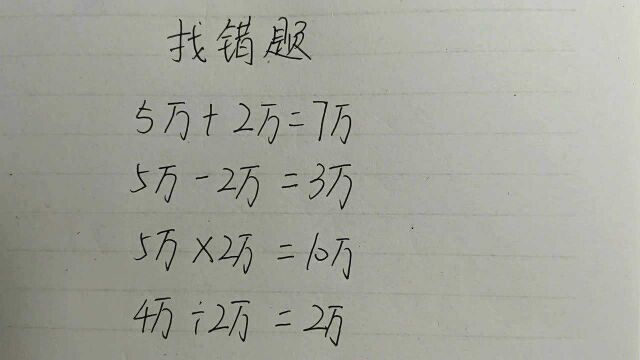 找错题
5万+2万=7万
5万-2万=3万
5万×2万=10万
4万÷2万=2万